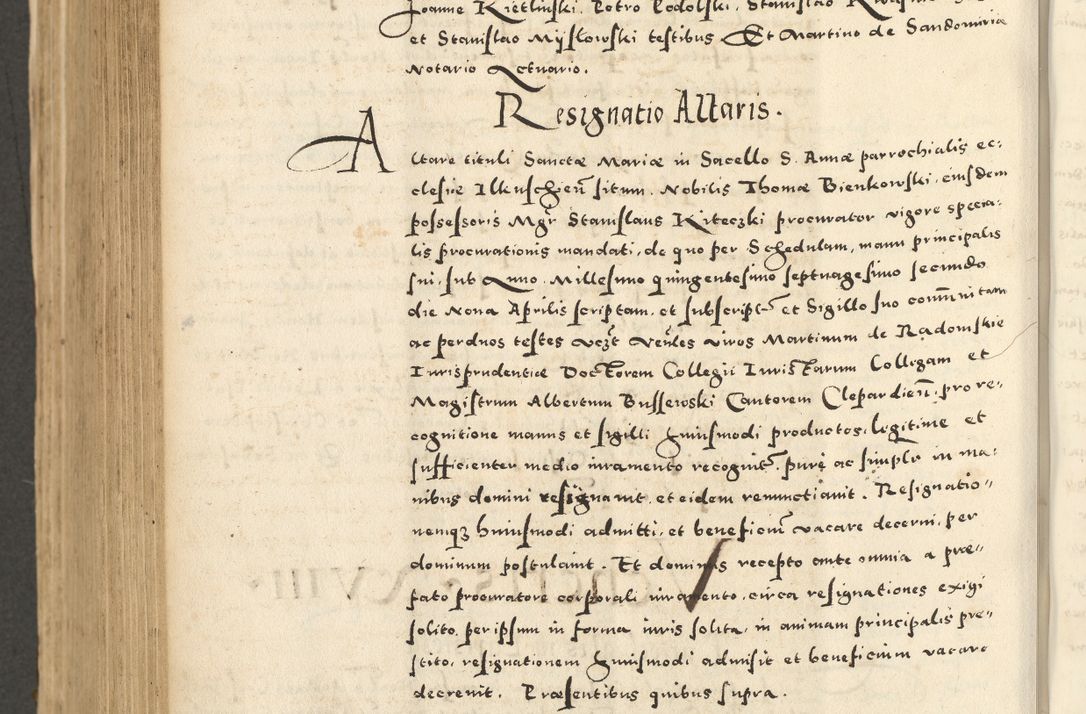 Joanne Kietlinski, Petro Podolski, Stanislao
et Stanislao Myskowski testibus Et Martino de Sandomiria
Notario Actuario.
Resignatio Altaris.
Altare tituli Sanctæ Mariæ in Sacello S. Annæ parrochialis ec:
clesiæ Ilkuschieñ situm. Nobilis Thomæ Bienkowski, eiusdem
possessoris Mgr Stanislaus Kiteczki procurator vigore specia:
lis procurationis mandati, de quo per Schedulam, manu principalis
sui, sub Anno Millesimo quingentesimo septuagesimo secundo
die Nona Aprilis scriptam, et subscript et Sigillo suo com̃unitam
ac per duos testes vezt veñles viros Martinum de Radomskie
Iurisprudentiæ Doctorem Collegii Iuristarum Collegam et
Magistrum Albertum Bussewski Cantorem Clepardieñ, pro re-
cognitione manus et sigilli huiusmodi productos, legitime et
sufficienter medio iuramento recognit. pure ac simplr in ma-
nibus domini resignavit, et eidem renunctiavit. Resignatio-
nemqz huiusmodi admitti, et beneficiũ vacare decerni, per
dominum postulavit. Et dominus recepto ante omnia a præ-
fato procuratore corporali iuramento, circa resignationes exigi
solito, per ipsum in forma iuris solita, in animam principalis pre-
stito, resignationem huiusmodi admisit et beneficium vacare
decrevit. Præsentibus quibus supra.